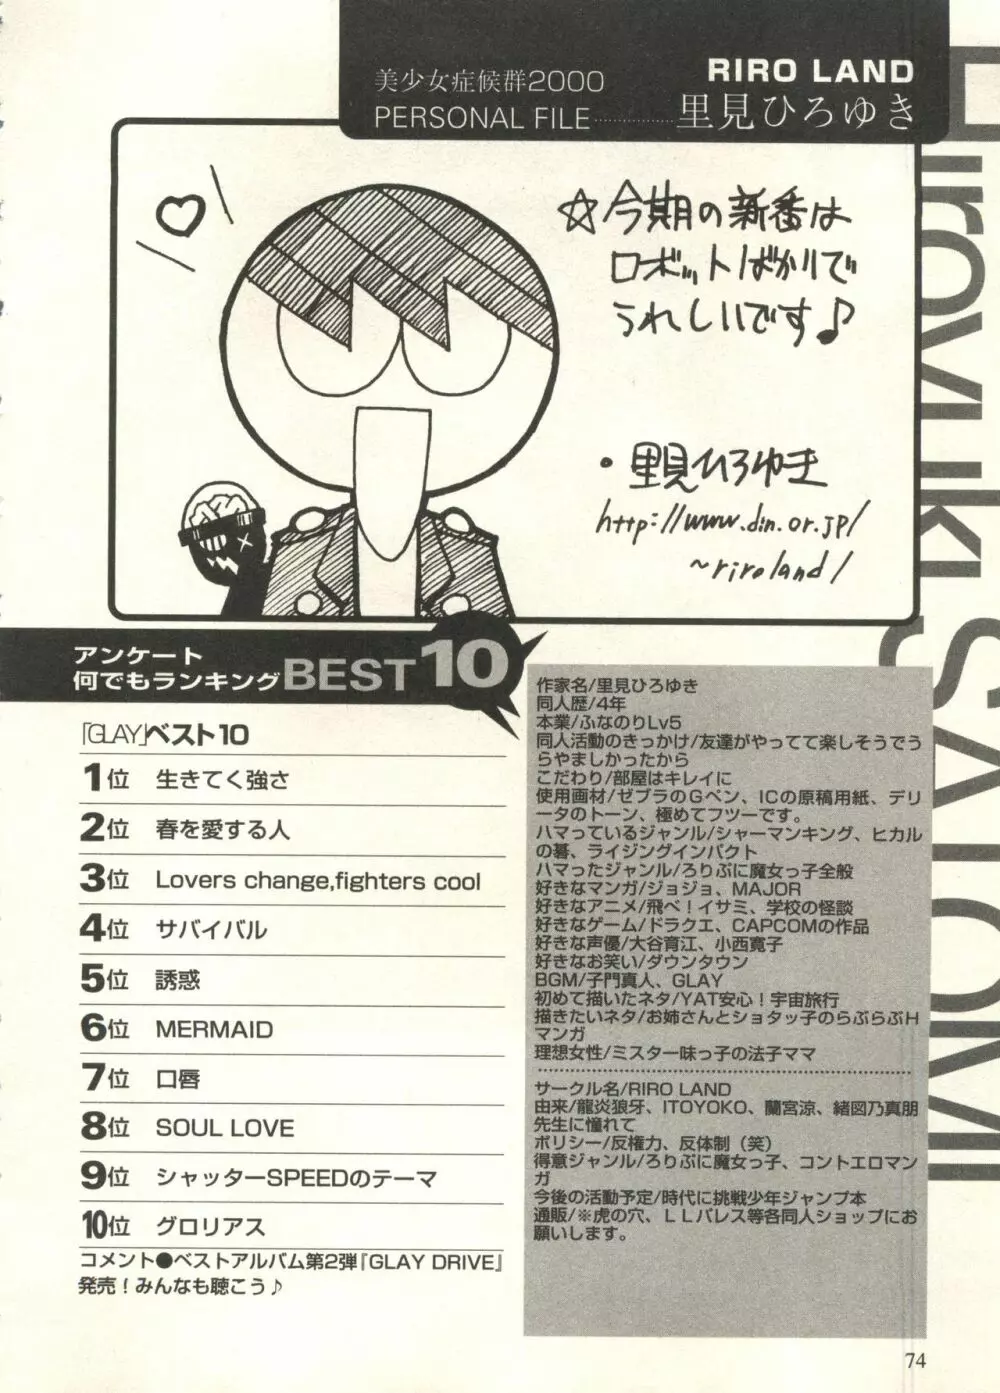 RIRO LAND
美少女症候群2000
PERSONAL FILE 里見ひろゆき
☆今期の新番は
ロボットばかりで
うれしいです♪
・里見ひろゆき
http://www.din.or.jp/
~riroland/
Hiroyuki SATOMI
アンケート
何でもランキングBEST10
「GLAY」ベスト10
1位 生きてく強さ
2位 春を愛する人
3位 Lovers change,fighters cool
4位 サバイバル
5位 誘惑
6位 MERMAID
7位 口唇
8位 SOUL LOVE
9位 シャッターSPEEDのテーマ
10位 グロリアス
コメント●ベストアルバム第2弾『GLAY DRIVE』
発売!みんなも聴こう♪
作家名/里見ひろゆき
同人歴/4年
本業/ふなのりLv5
同人活動のきっかけ/友達がやってて楽しそうでう
らやましかったから
こだわり/部屋はキレイに
使用画材/ゼブラのGペン、ICの原稿用紙、デリ
ータのトーン、極めてフツーです。
ハマっているジャンル/シャーマンキング、ヒカル
の碁、ライジングインパクト
ハマったジャンル/ろりぷに魔女っ子全般
好きなマンガ/ジョジョ、MAJOR
好きなアニメ/飛べ!イサミ、学校の怪談
好きなゲーム/ドラクエ、CAPCOMの作品
好きな声優/大谷育江、小西寛子
好きなお笑い/ダウンタウン
BGM/子門真人、GLAY
初めて描いたネタ/YAT安心!宇宙旅行
描きたいネタ/お姉さんとショタッ子のらぶらぶH
マンガ
理想女性/ミスター味っ子の法子ママ
サークル名/RIRO LAND
由来/龍炎狼牙、ITOYOKO、蘭宮涼、緒図乃真朋
先生に憧れて
ポリシー/反権力、反体制(笑)
得意ジャンル/ろりぷに魔女っ子、コントエロマン
ガ
今後の活動予定/時代に挑戦少年ジャンプ本
通販/※虎の穴、LLパレス等各同人ショップにお
願いします。
74